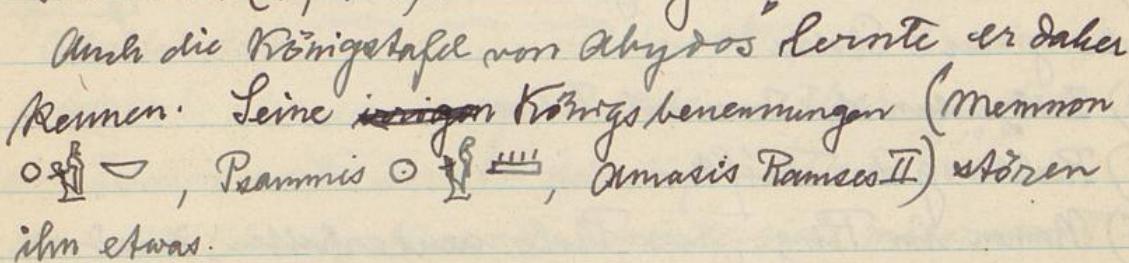 Auch die Königstafel von Abydos lernte er daher
kennen. Seine irrigen Königsbenennungen (Memnon
𓇳𓁦𓎟, Psammis 𓇳𓁦𓏠, Amasis Ramses II) stören
ihn etwas.